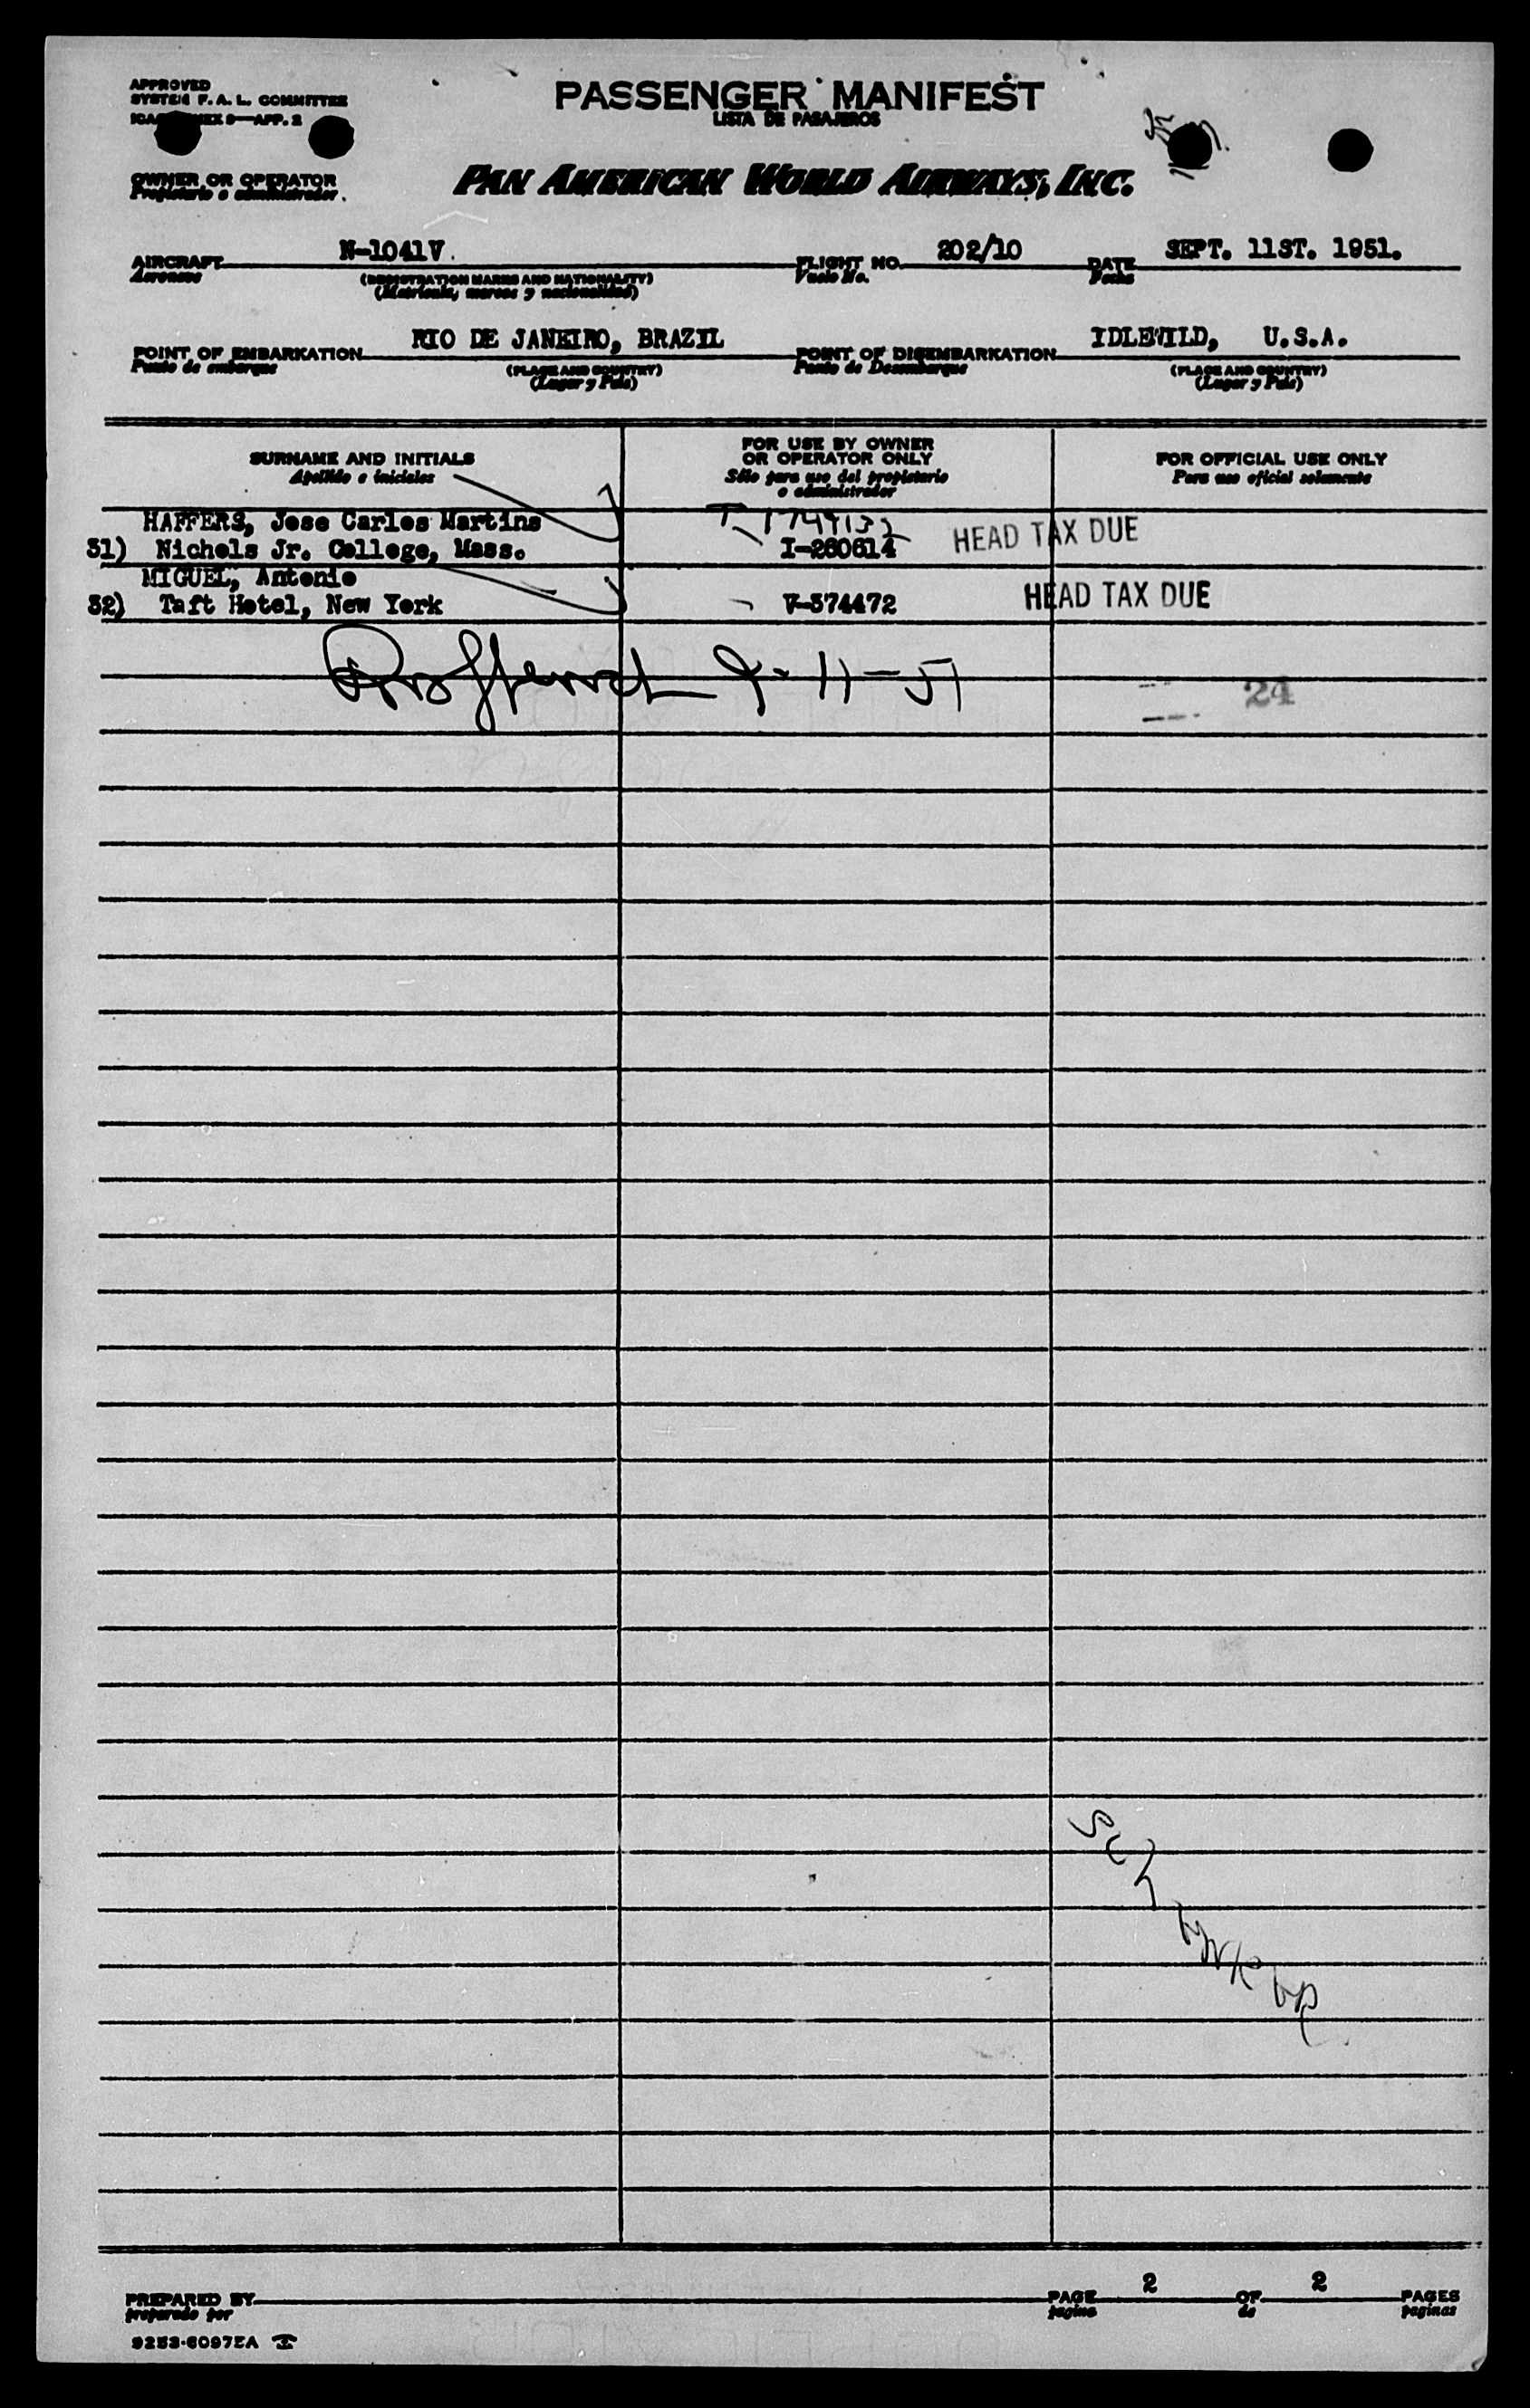 APPROVED
SYSTEM F. A. L. COMMITTEE
ICAO ANNEX 9—APP. 2
PASSENGER MANIFEST
LISTA DE PASAJEROS
OWNER OR OPERATOR
Propietario o administrador.
PAN AMERICAN WORLD AIRWAYS, INC.
AIRCRAFT N-1041V. FLIGHT NO. 202/10 DATE SEPT. 11ST. 1951.
Aeronave (REGISTRATION MARKS AND NATIONALITY) Vuelo No. Fecha
(Matricula, marcas y nacionalidad)
POINT OF EMBARKATION RIO DE JANEIRO, BRAZIL POINT OF DISEMBARKATION IDLEWILD, U.S.A.
Punto de embarque (PLACE AND COUNTRY) Punto de Desembarque (PLACE AND COUNTRY)
(Lugar y País) (Lugar y País)
SURNAME AND INITIALS FOR USE BY OWNER OR OPERATOR ONLY FOR OFFICIAL USE ONLY
Apellido e iniciales Sólo para uso del propietario o administrador Para uso oficial solamente
HAFFERS, Jose Carlos Martins
31) Nichols Jr. College, Mass. I-260614 HEAD TAX DUE
MIGUEL, Antonio
32) Taft Hotel, New York V-574472 HEAD TAX DUE
9-11-51
24
PREPARED BY PAGE 2 OF 2 PAGES
preparado por pagina de paginas
9253-6097EA